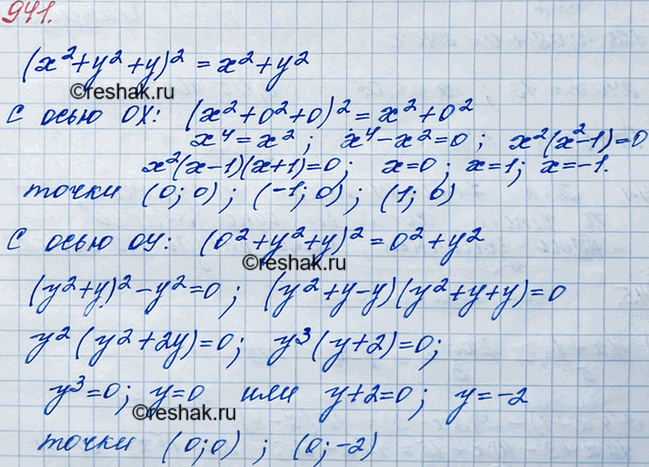 941.
(x²+y²+y)² = x²+y²
©reshak.ru
с осью OX: (x²+0²+0)²=x²+0²
x⁴=x²; x⁴-x²=0; x²(x²-1)=0
x²(x-1)(x+1)=0; x=0; x=1; x=-1.
точки (0; 0); (-1; 0); (1; 0)
с осью OY: (0²+y²+y)²=0²+y²
©reshak.ru
(y²+y)²-y²=0; (y²+y-y)(y²+y+y)=0
y²(y²+2y)=0; y³(y+2)=0;
y³=0; y=0 или y+2=0; y=-2
©reshak.ru
точки (0;0) ; (0;-2)